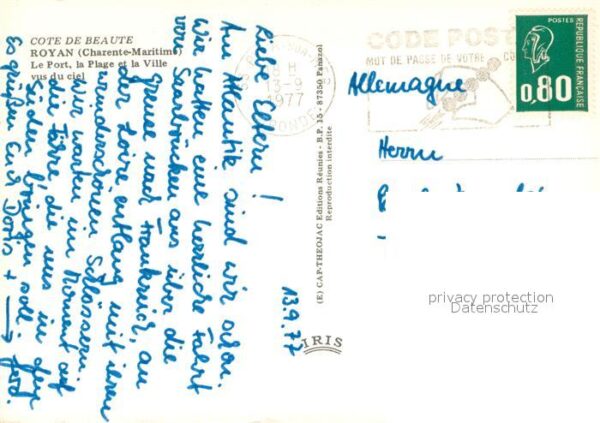 COTE DE BEAUTE
ROYAN (Charente-Maritime)
Le Port, la Plage et la Ville
vus du ciel
13.9.77
Liebe Eltern!
Am Atlantik sind wir schon.
Wir hatten eine herrliche Fahrt
von Saarbrücken aus über die
Grenze nach Frankreich, an
der Loire entlang mit ihren
wunderschönen Schlössern.
Wir warten im Moment auf
die Fähre die uns in den
Süden bringen soll.
Es grüßen Euch Doris + Gerd.
(E) CAP-THEOJAC Editions Réunies - B.P. 15 - 87350 Panazol
Reproduction interdite
IRIS
13-9
1977
CODE POST
MOT DE PASSE DE VOTRE
POSTES
REPUBLIQUE FRANÇAISE
0,80
Allemagne
Herrn
privacy protection
Datenschutz